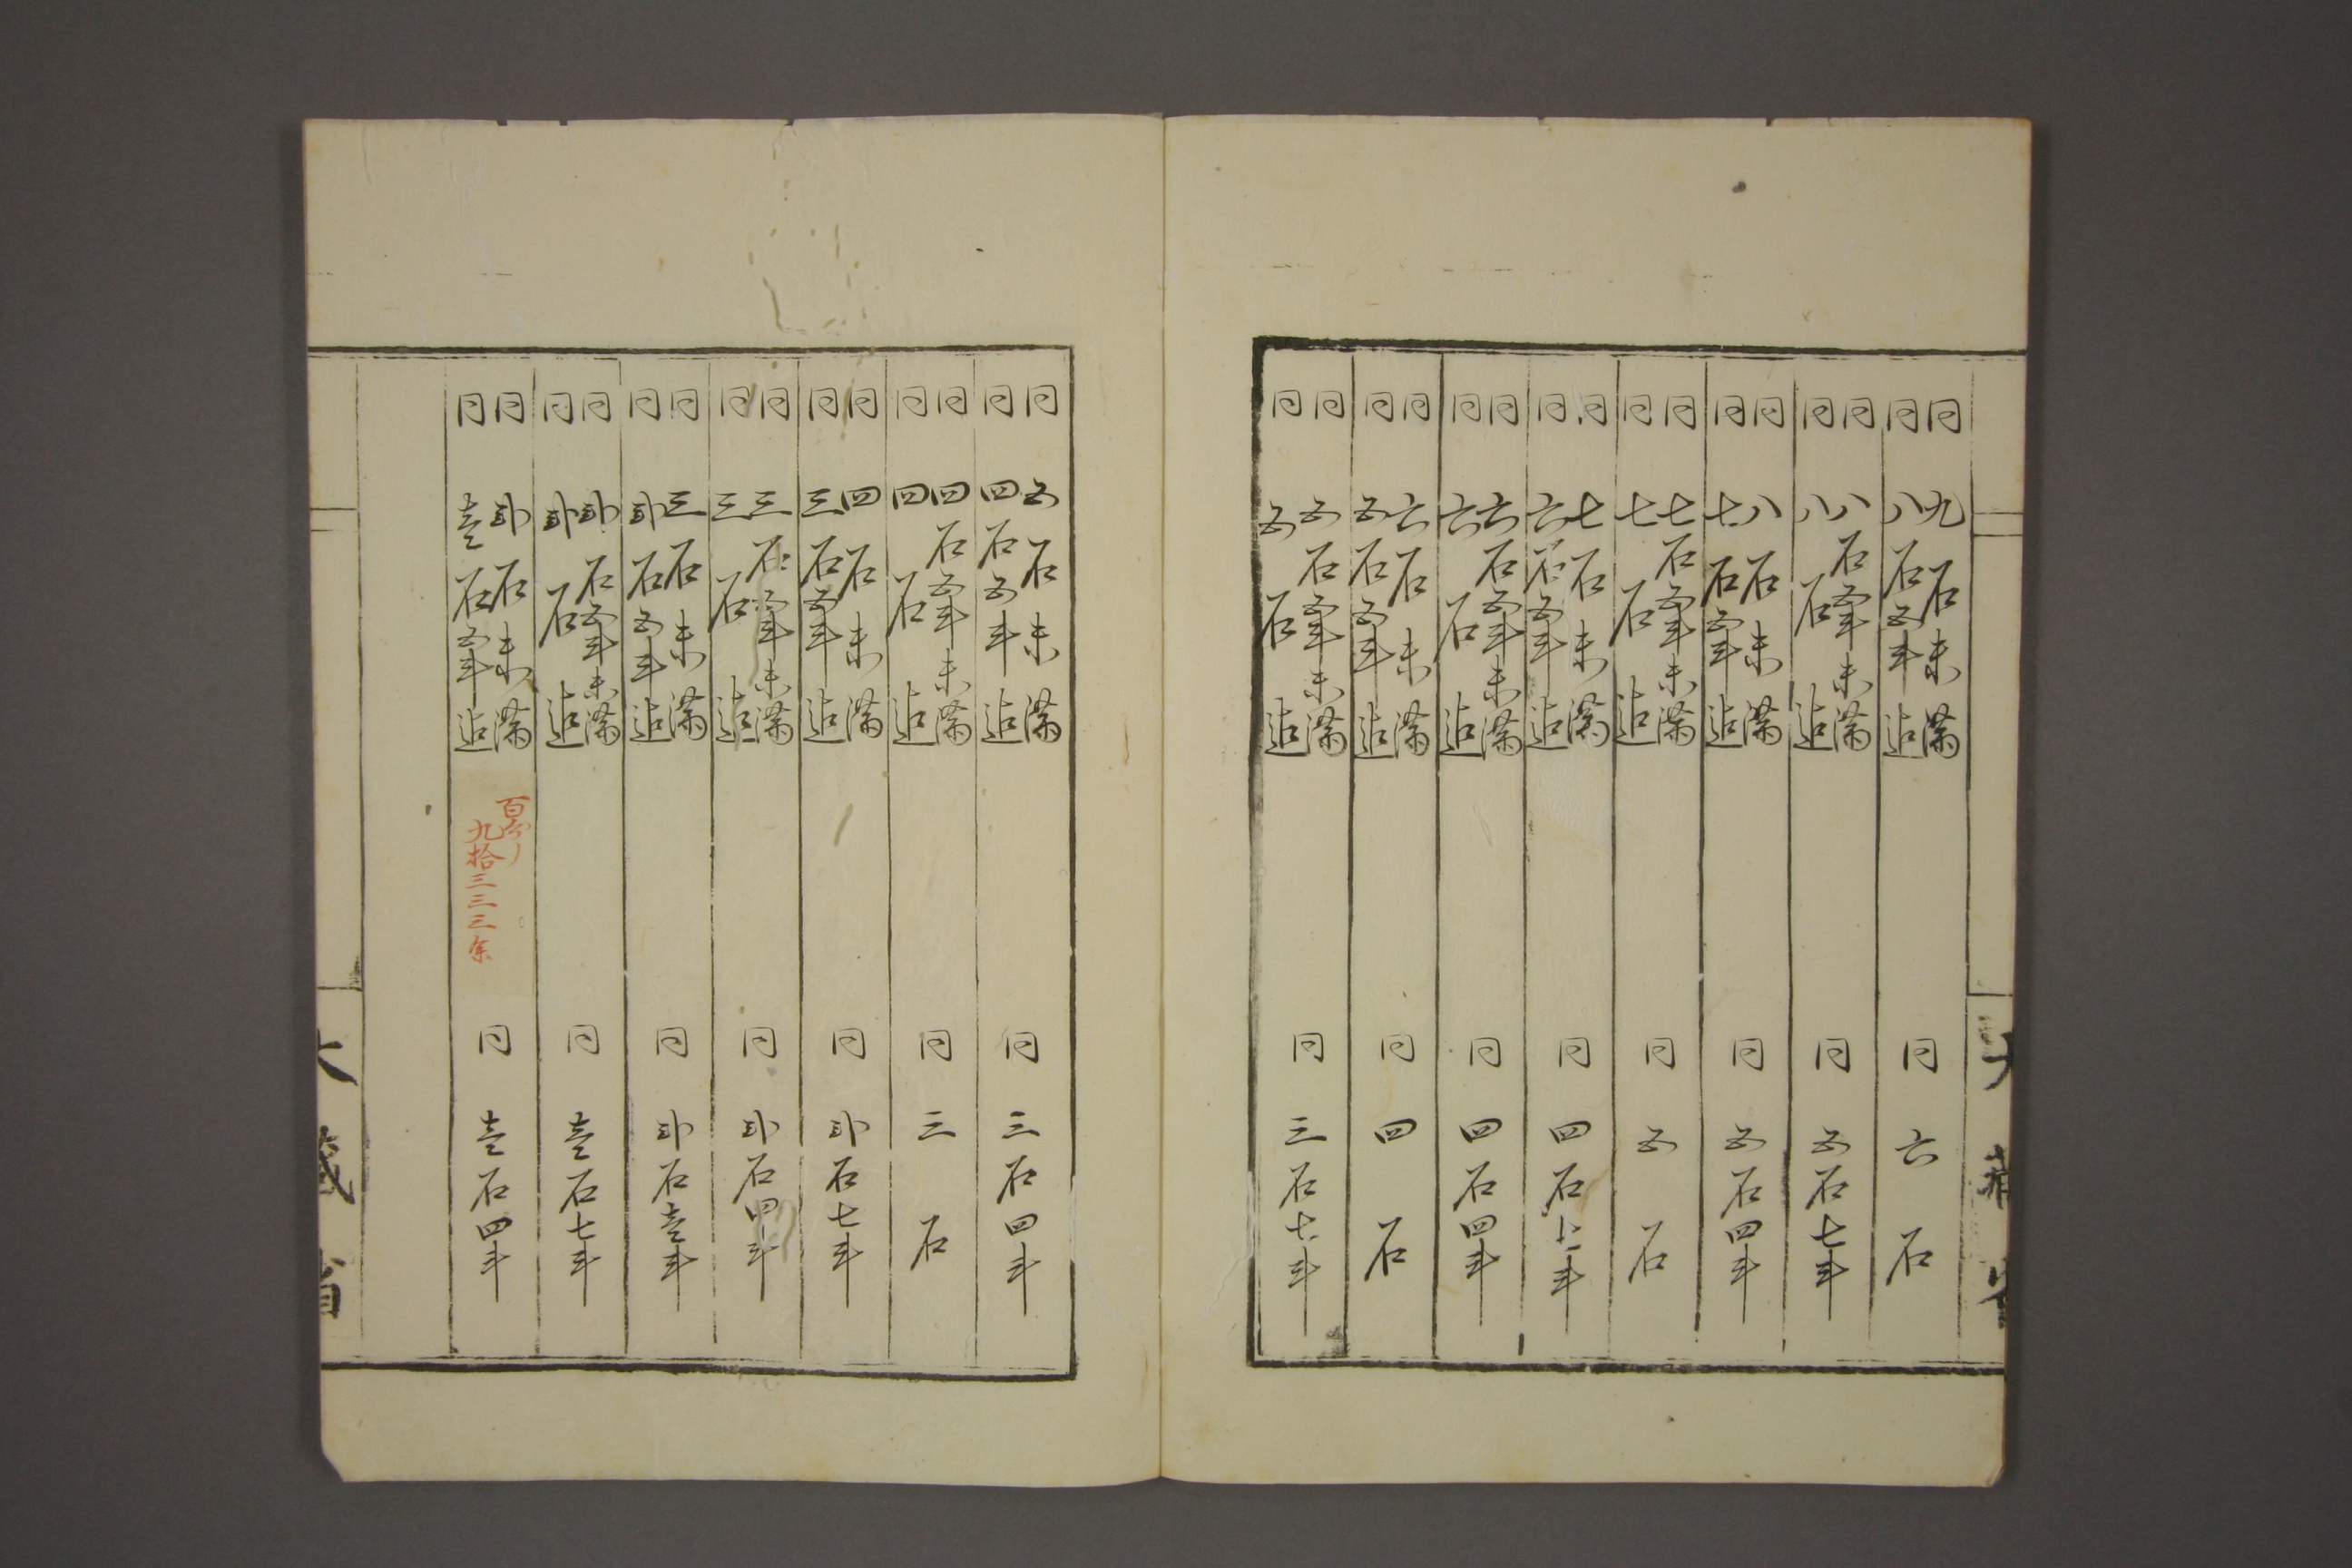 同九石未満
同八石五斗迄
同六石
同八石五斗未満
同八石迄
同五石七斗
同八石未満
同七石五斗迄
同五石四斗
同七石五斗未満
同七石迄
同五石
同七石未満
同六石五斗迄
同四石七斗
同六石五斗未満
同六石迄
同四石四斗
同六石未満
同五石五斗迄
同四石
同五石五斗未満
同五石迄
同三石七斗
同五石未満
同四石五斗迄
同三石四斗
同四石五斗未満
同四石迄
同三石
同四石未満
同三石五斗迄
同弐石七斗
同三石五斗未満
同三石迄
同弐石四斗
同三石未満
同弐石五斗迄
同弐石壱斗
同弐石五斗未満
同弐石迄
同壱石七斗
同弐石未満
同壱石五斗迄
百分ノ
九拾三三三余
同壱石四斗
大蔵省